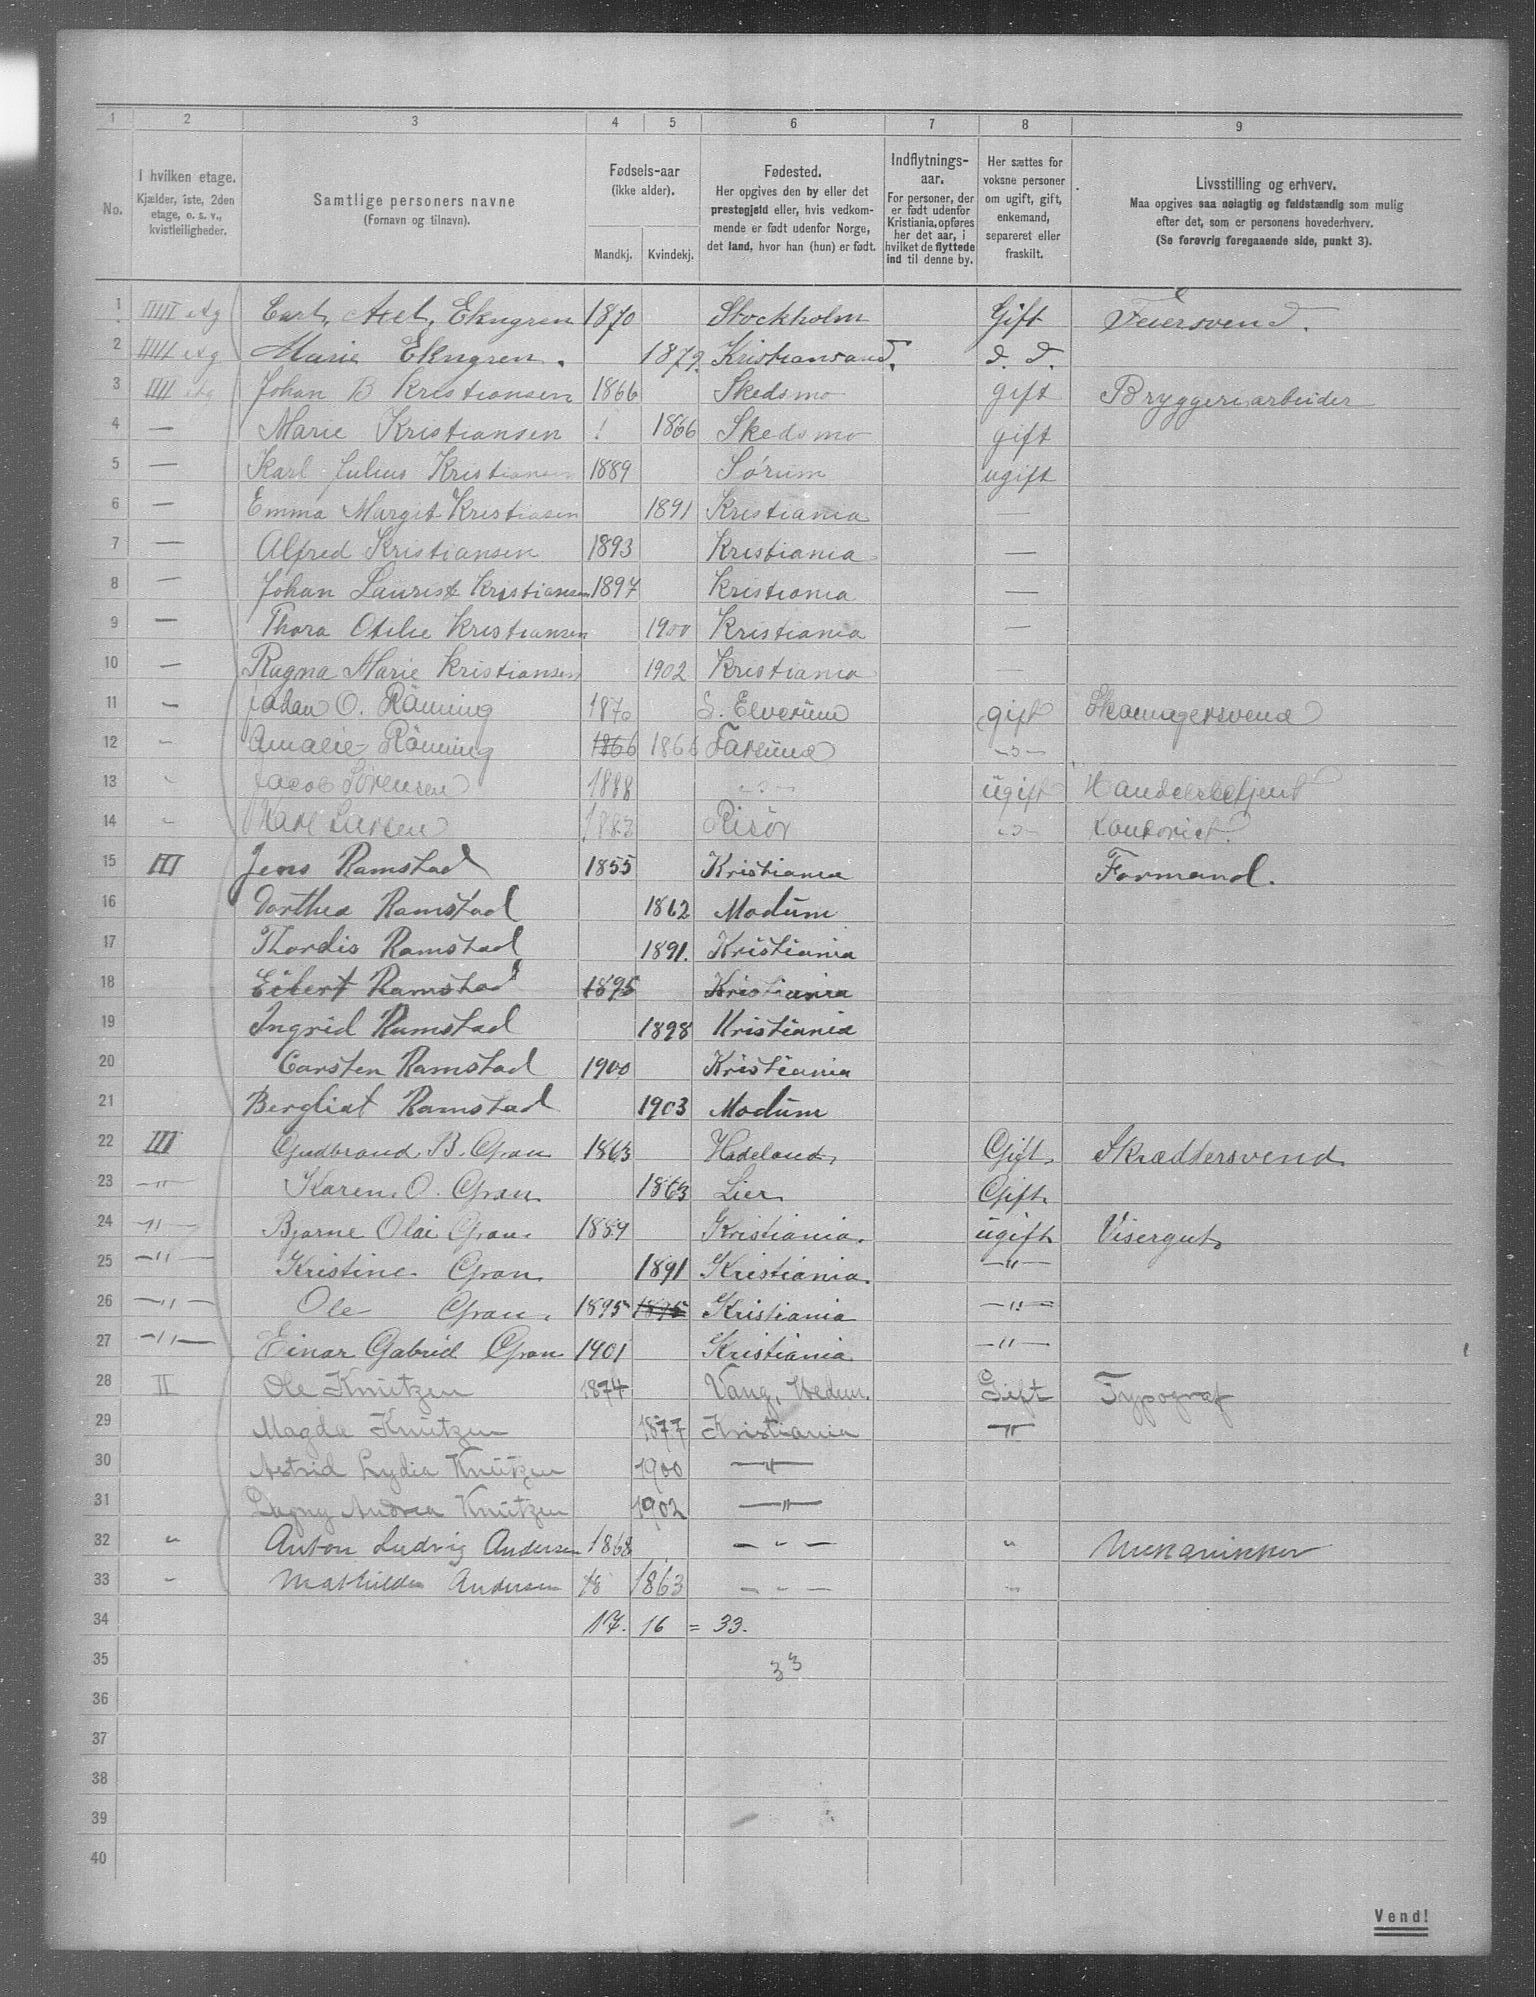 1 2 3 4 5 6 7 8 9
No. I hvilken etage. Kjælder, 1ste, 2den etage, o. s. v., kvistleiligheder. Samtlige personers navne (Fornavn og tilnavn). Fødsels-aar (ikke alder). Mandkj. Kvindekj. Fødested. Her opgives den by eller det prestegjeld eller, hvis vedkommende er født udenfor Norge, det land, hvor han (hun) er født. Indflytnings-aar. For personer, der er født udenfor Kristiania, opføres her det aar, i hvilket de flyttede ind til denne by. Her sættes for voksne personer om ugift, gift, enkemand, separeret eller fraskilt. Livsstilling og erhverv. Maa opgives saa nøiagtig og fuldstændig som mulig efter det, som er personens hovederhverv. (Se forøvrig foregaaende side, punkt 3).
1 Carl, Axel, Ekngren 1870 Stockholm Gift Feiersvend.
2 Marie Ekngren. 1879. Kristiansand. d. d.
3 Johan B Kristiansen 1866 Skedsmo gift Bryggeriarbeider
4 — Marie Kristiansen 1866 Skedsmo gift
5 — Karl Julius Kristiansen 1889 Sørum ugift
6 — Emma Margit Kristiasen 1891 Kristiania —
7 — Alfred Kristiansen 1893 Kristiania —
8 — Johan Laurits Kristiansen 1897 Kristiania —
9 — Thora Otilie Kristiansen 1900 Kristiania —
10 — Ragna Marie Kristiansen 1902 Kristiania —
11 — Johan O. Rönning 1870 S. Elverum gift Skomagersvend
12 - Amalie Rönning 1866 1866 Farsund -"-
13 - Jacob Sørensen 1888 -"- ugift Handelsbetjent
14 - Karl Larsen 1883 Risör -"- Kontorist.
15 III Jens Ramstad 1855 Kristiania Formand.
16 Dorthea Ramstad 1862 Modum
17 Thordis Ramstad 1891. Kristiania
18 Eibert Ramstad 1895 Kristiania
19 Ingrid Ramstad 1898 Kristiania
20 Carsten Ramstad 1900 Kristiania
21 Bergliot Ramstad 1903 Modum
22 III Gudbrand. B. Gran 1863 Hadeland, Gift. Skræddersvend
23 —"— Karen. O. Gran 1863 Lier Gift.
24 —"— Bjarne Olai Gran. 1889 Kristiania. ugift Visergut
25 —"— Kristine Gran 1891 Kristiania. —"—
26 —"— Ole Gran. 1895 1895 Kristiania —"—
27 —"— Einar Gabriel Gran 1901 Kristiania —"—
28 II Ole Knutzen 1874 Vang, Hedm. Gift Typograf
29 Magda Knutzen 1877 Kristiania —"—
30 Astrid Lydia Knutzen 1900 —"—
31 Dagny Andrea Knutzen 1902 —"—
32 " Anton Ludvig Andersen 1868 — " — " Mekanikker
33 " Mathilde Andersen 18 1863 — " — "
34 17. 16 = 33.
35 33
36
37
38
39
40
Vend!